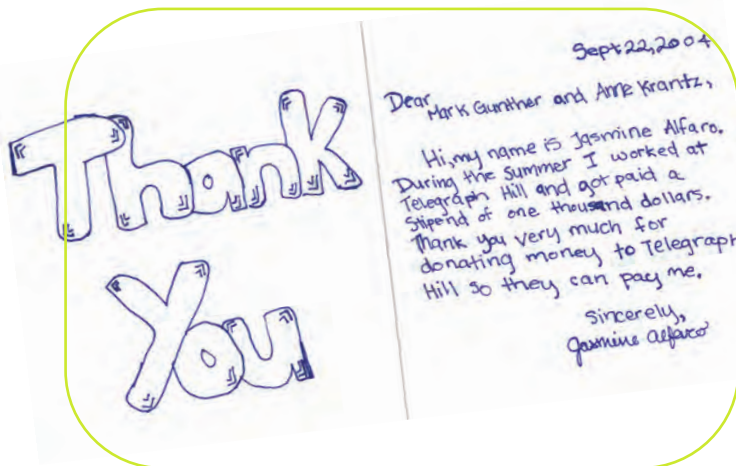 Thank
You
Sept 22, 2004
Dear Mark Gunther and Anne Krantz,
Hi, my name is Jasmine Alfaro.
During the summer I worked at
Telegraph Hill and got paid a
stipend of one thousand dollars.
Thank you very much for
donating money to Telegraph
Hill so they can pay me.
Sincerely,
Jasmine Alfaro